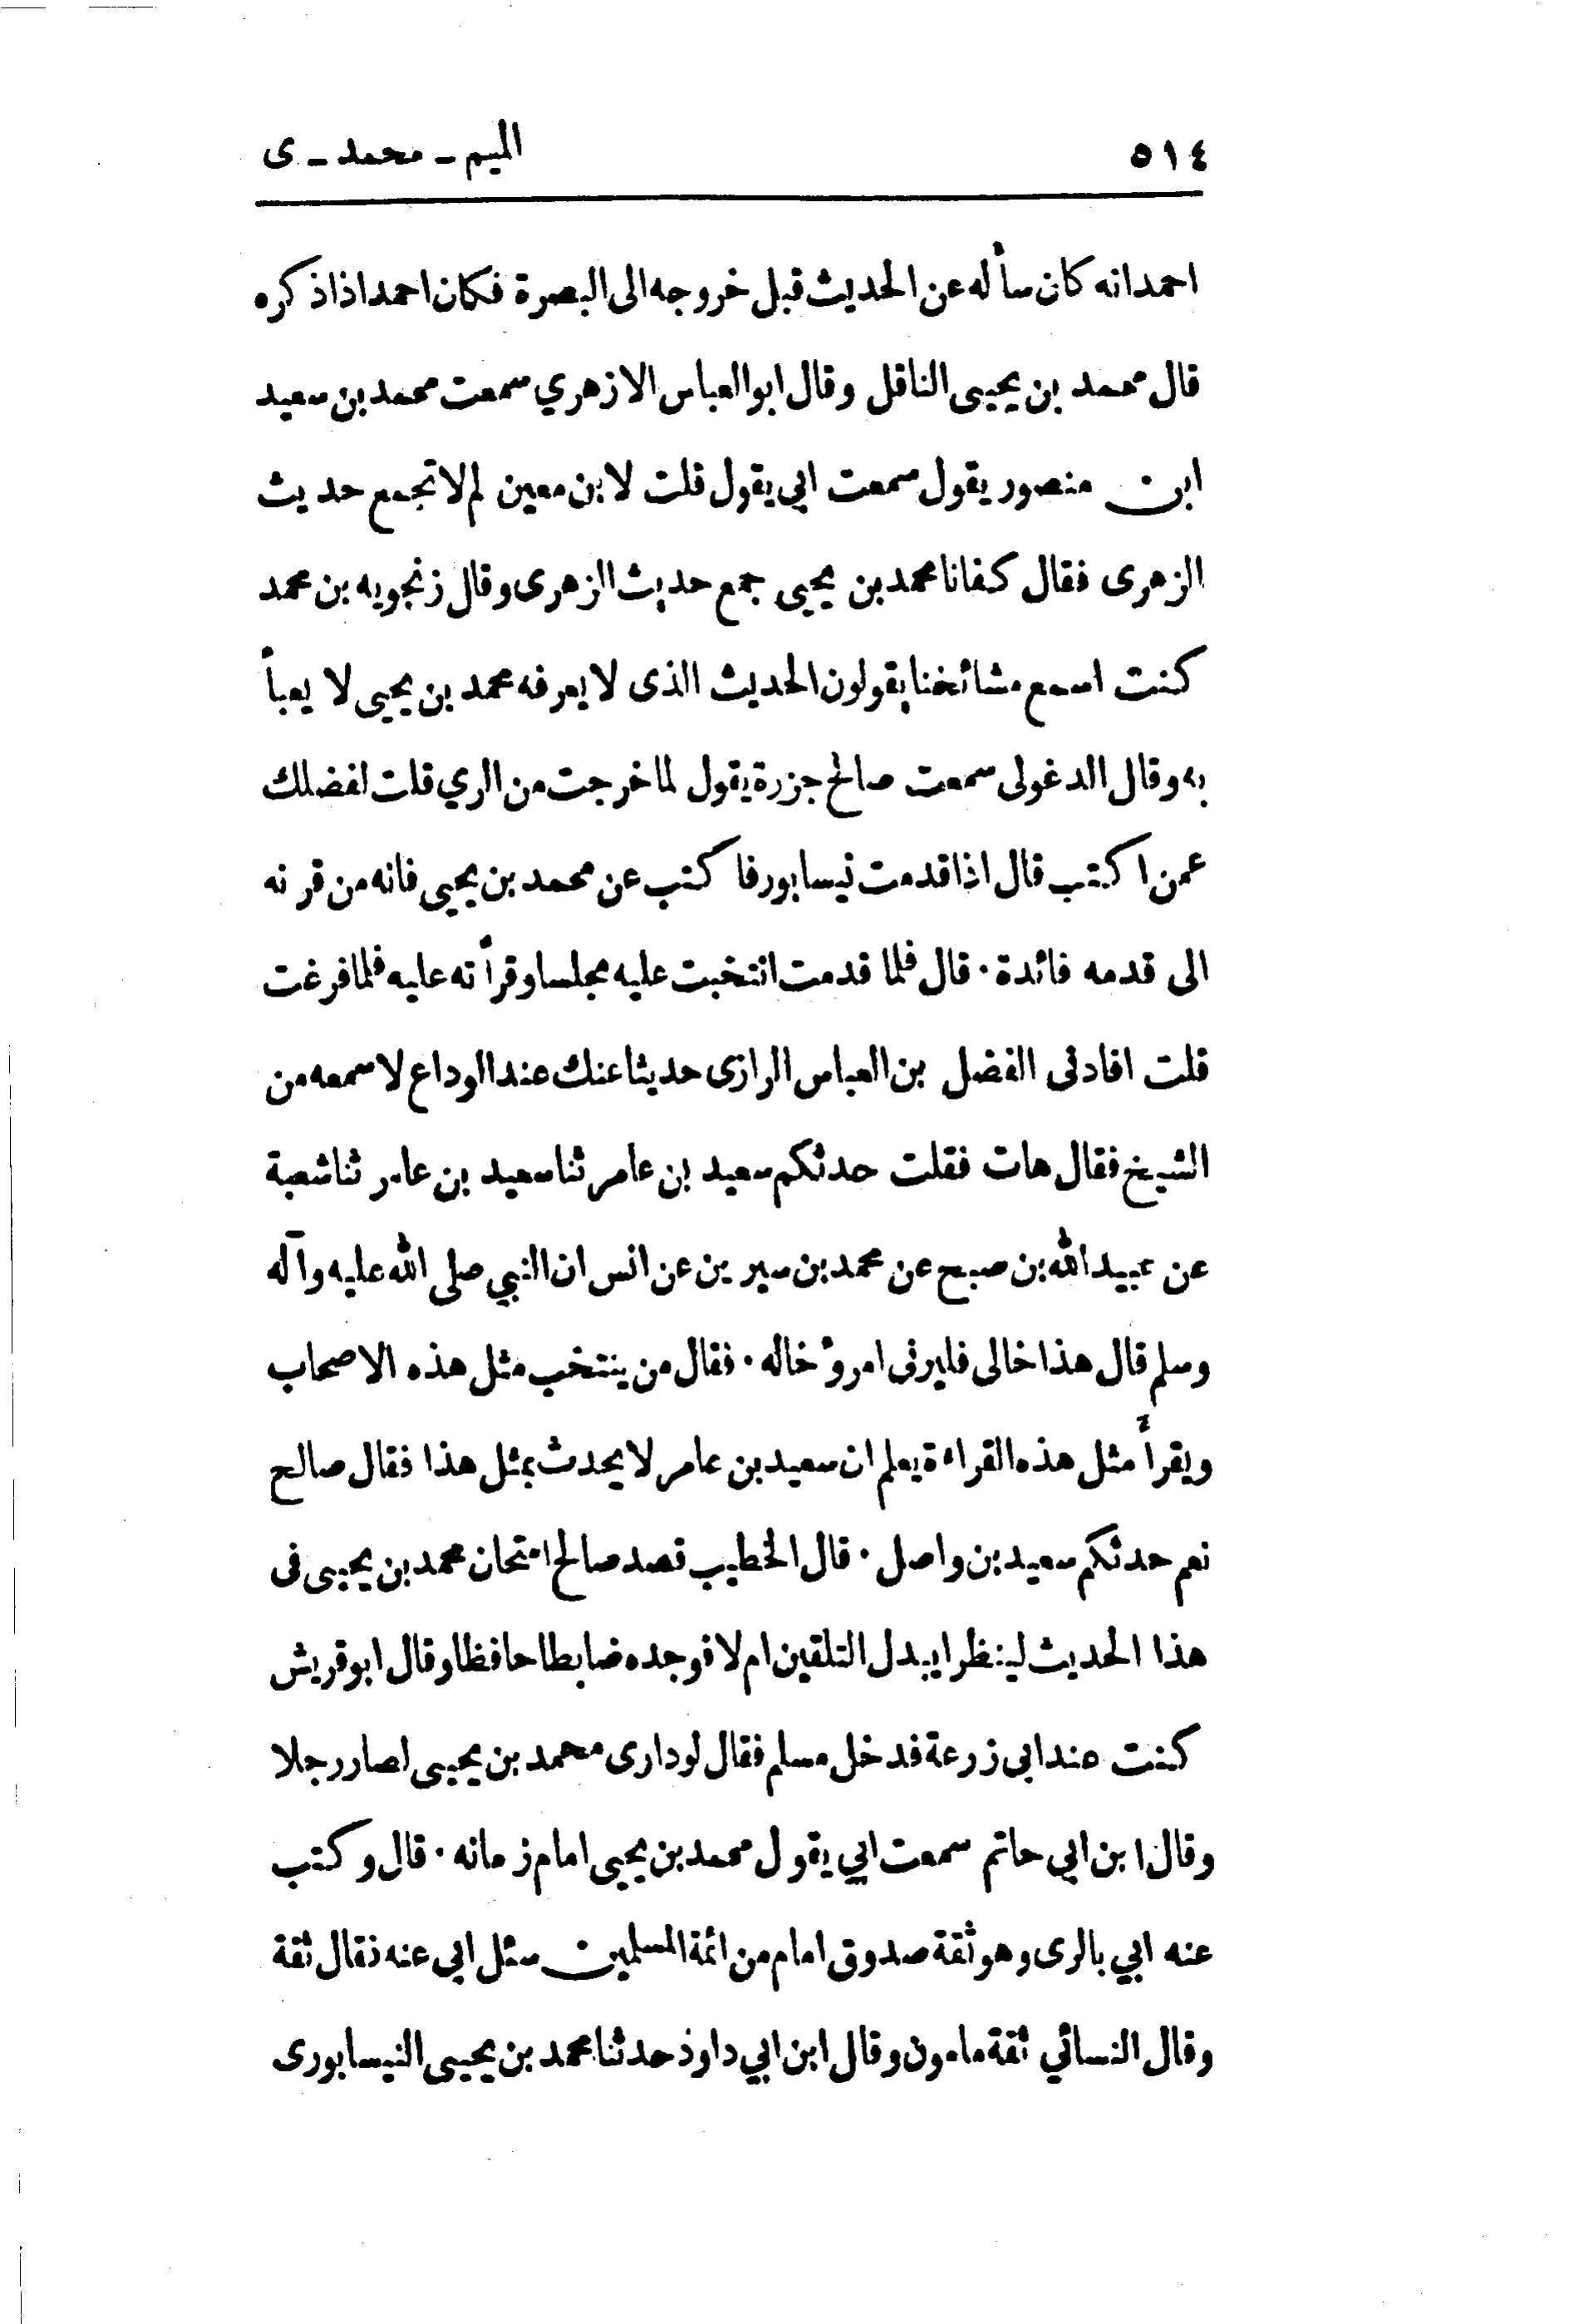 ٥١٤
الميم - محمد - ى
احمد انه كان سأله عن الحديث قبل خروجه الى البصرة فكان احمد اذا ذكره
قال محمد بن يحيى الناقل وقال ابو العباس الازهري سمعت محمد بن سعيد
ابن منصور يقول سمعت ابي يقول قلت لابن معين لم لا تجمع حديث
الزهرى فقال كفانا محمد بن يحيى جمع حديث الزهرى وقال زنجويه بن محمد
كنت اسمع مشائخنا يقولون الحديث الذى لا يعرفه محمد بن يحيى لا يعبأ
به وقال الدغولى سمعت صالح جزرة يقول لما خرجت من الري قلت لفضلك
عمن اكتب قال اذا قدمت نيسابور فاكتب عن محمد بن يحيى فانه من قرنه
الى قدمه فائدة . قال فلما قدمت انتخبت عليه مجلسا وقرأته عليه فلما فرغت
قلت افادنى الفضل بن العباس الرازى حديثا عنك عند الوداع لاسمعه من
الشيخ فقال هات فقلت حدثكم سعيد بن عامر ثنا سعيد بن عامر ثنا شعبة
عن عبيد الله بن صبح عن محمد بن سيرين عن انس ان النبي صلى الله عليه وآله
وسلم قال هذا خالى فليرنى امرؤ خاله . فقال من ينتخب مثل هذه الاصحاب
ويقرأ مثل هذه القراءة يعلم ان سعيد بن عامر لا يحدث بمثل هذا فقال صالح
نعم حدثكم سعيد بن واصل . قال الخطيب قصد صالح امتحان محمد بن يحيى فى
هذا الحديث لينظر ايبدل التلقين ام لا فوجده ضابطا حافظا وقال ابو قريش
كنت عند ابى زرعة فدخل مسلم فقال لو دارى محمد بن يحيى لصار رجلا
وقال ابن ابي حاتم سمعت ابي يقول محمد بن يحيى امام زمانه . قال وكتب
عنه ابي بالرى وهو ثقة صدوق امام من ائمة المسلمين سئل ابى عنه فقال ثقة
وقال النسائي ثقة مامون وقال ابن ابي داود حدثنا محمد بن يحيى النيسابورى